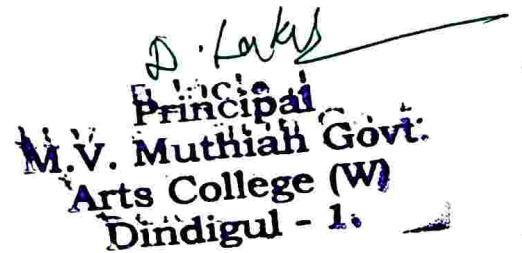 D.
Principal
M.V. Muthiah Govt.
Arts College (W)
Dindigul - 1.